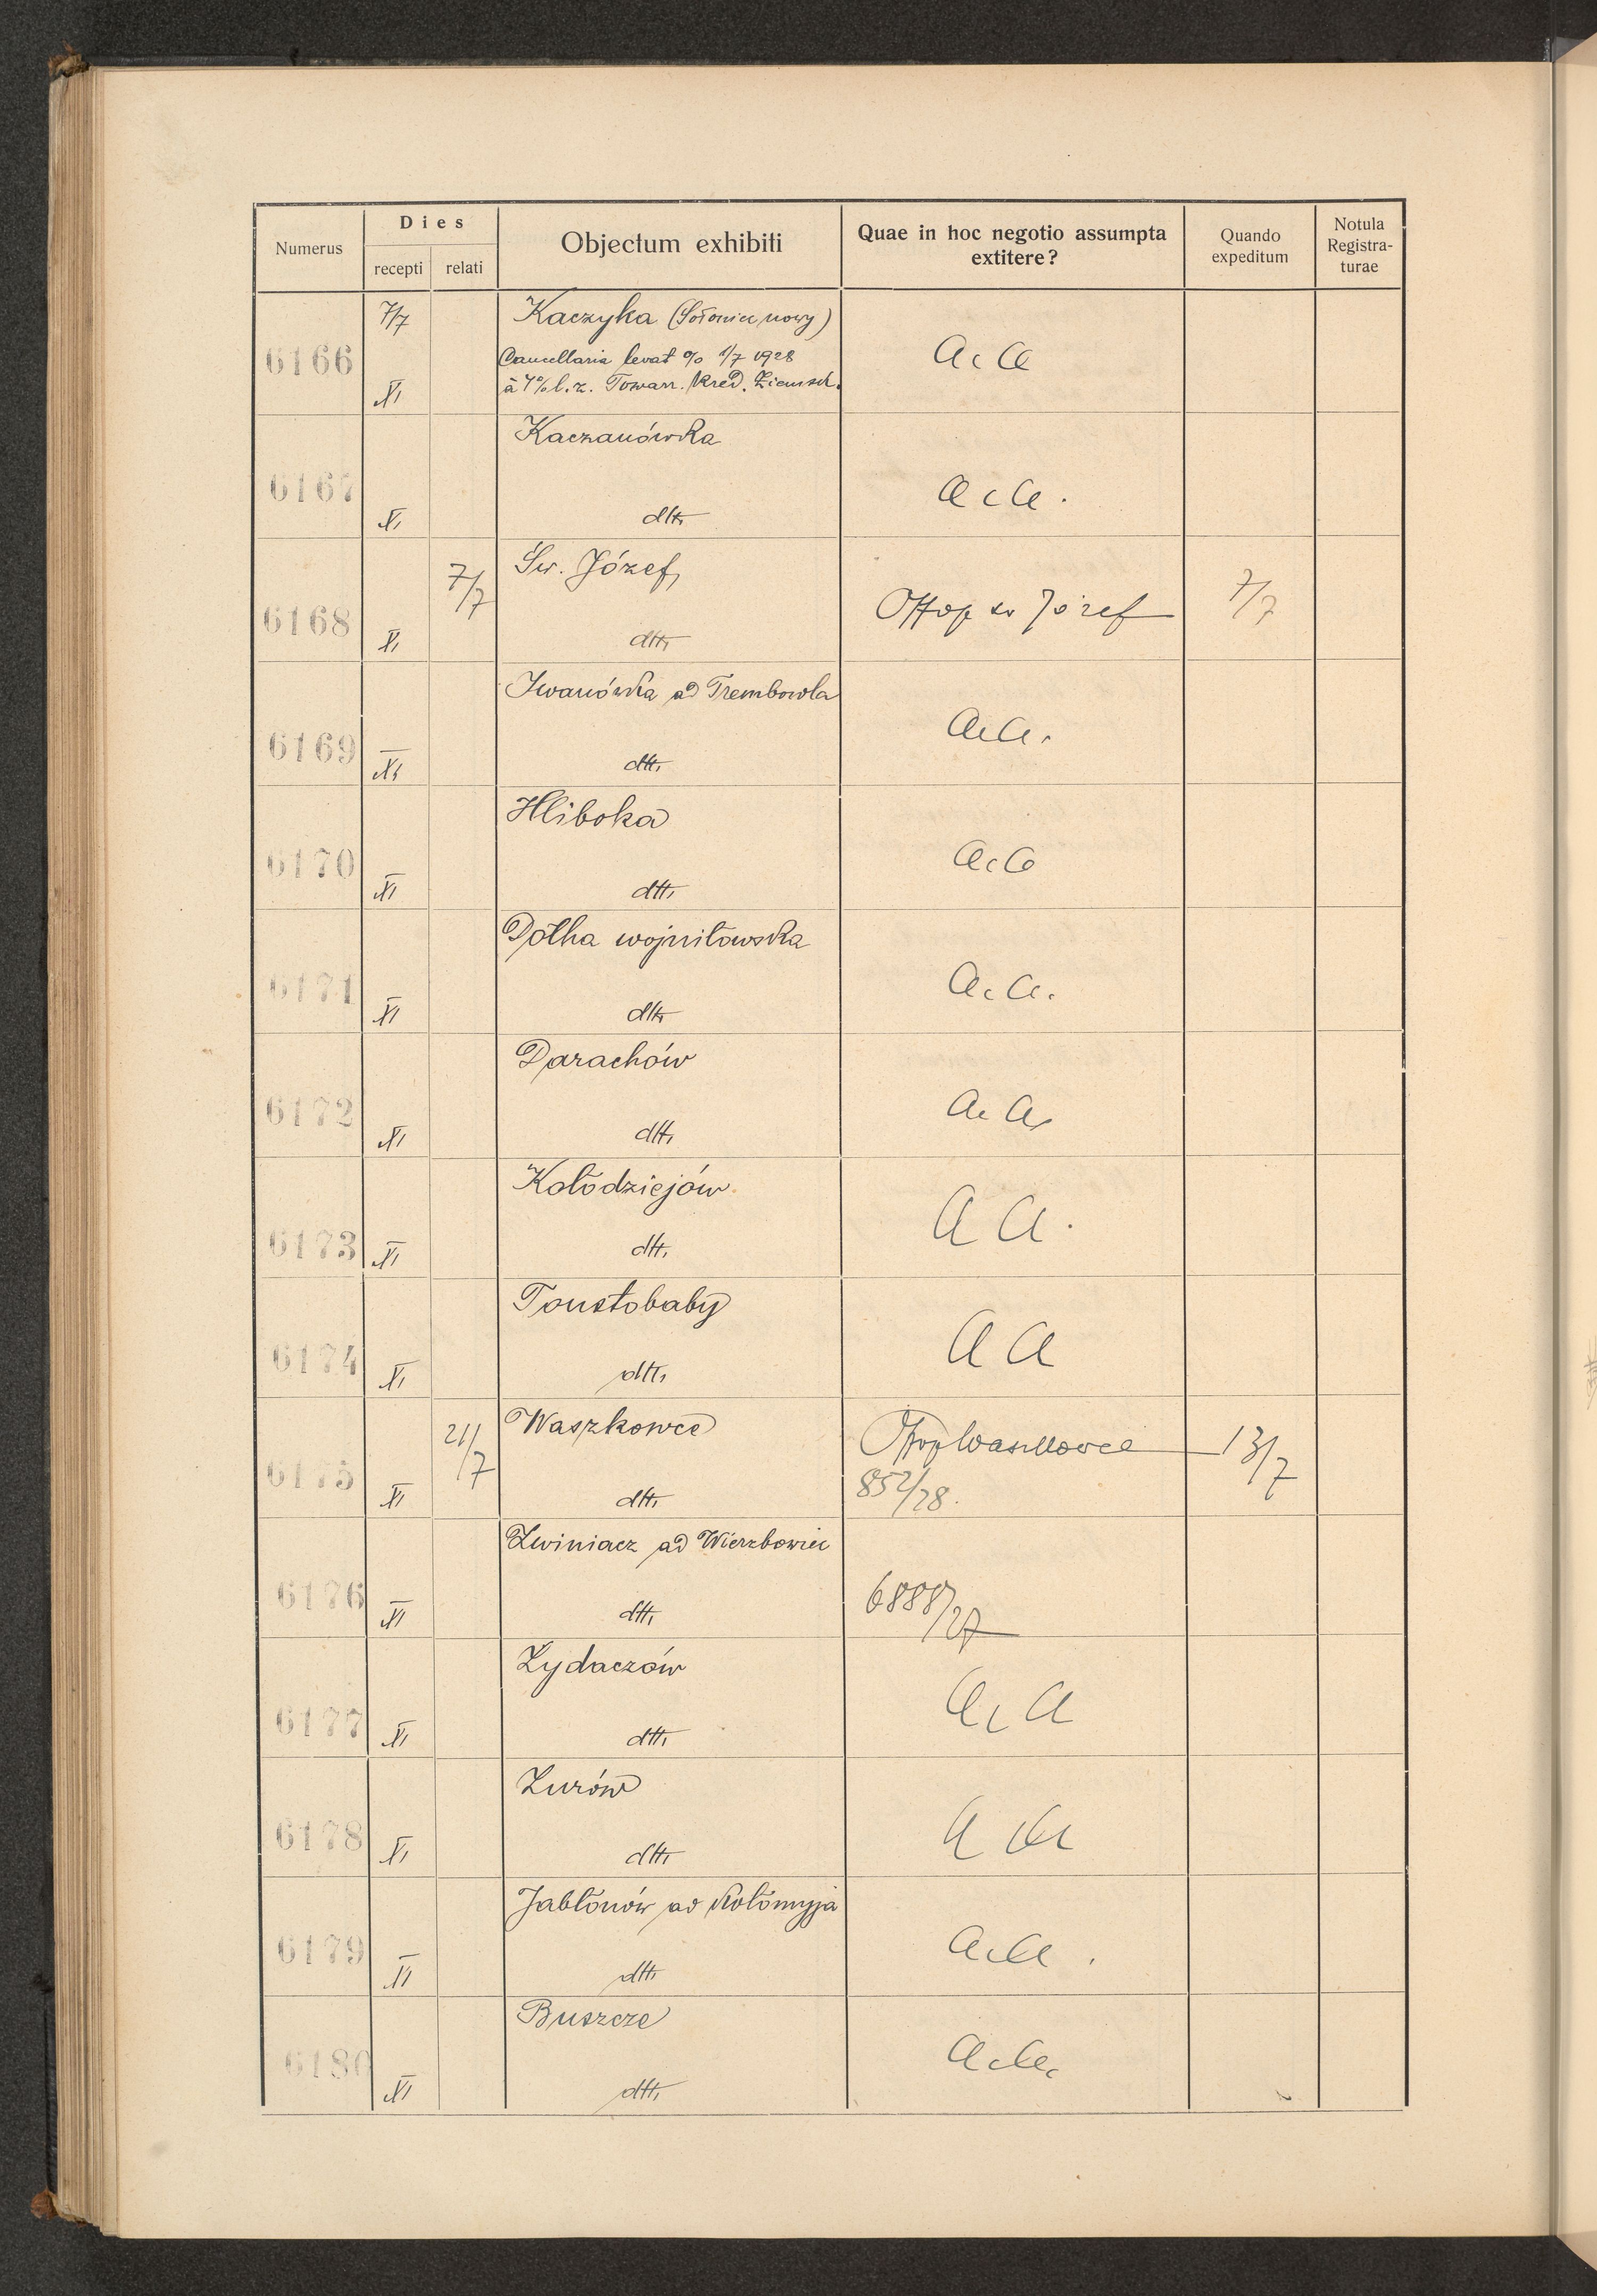 Numerus Dies Objectum exhibiti Quae in hoc negotio assumpta extitere? Quando expeditum Notula Registra-turae
recepti relati
7/7 Kaczyka (Sołoniec nowy)
6166 Cancellaria levat % 1/7 1928 A. A
XI à 4% l. z. Towarz. Kred. Ziemsk.
Kaczanówka
6167 A. A.
XI dtt.
7/7 Św. Józef,
6168 Offop św Józef 7/7
XI dtt.
Iwanówka ad Trembowla
6169 A. A.
XI dtt.
Hliboka
6170 A. A
XI dtt.
Dołha wojniłowska
6171 A. A.
XI dtt.
Darachów
6172 A. A.
XI dtt.
Kołodziejów
6173 A A.
XI dtt.
Toustobaby
6174 A A
XI dtt.
21/7 Waszkowce 13/7
6175 852/28.
XI dtt.
Zwiniacz ad Wierzbowiec
6176 6888/27
XI dtt.
Żydaczów
6177 A. A
XI dtt.
Żurów
6178 A A
XI dtt.
Jabłonów ad Kołomyja
6179 A. A.
XI dtt.
Buszcze
6180 A. A.
XI dtt.